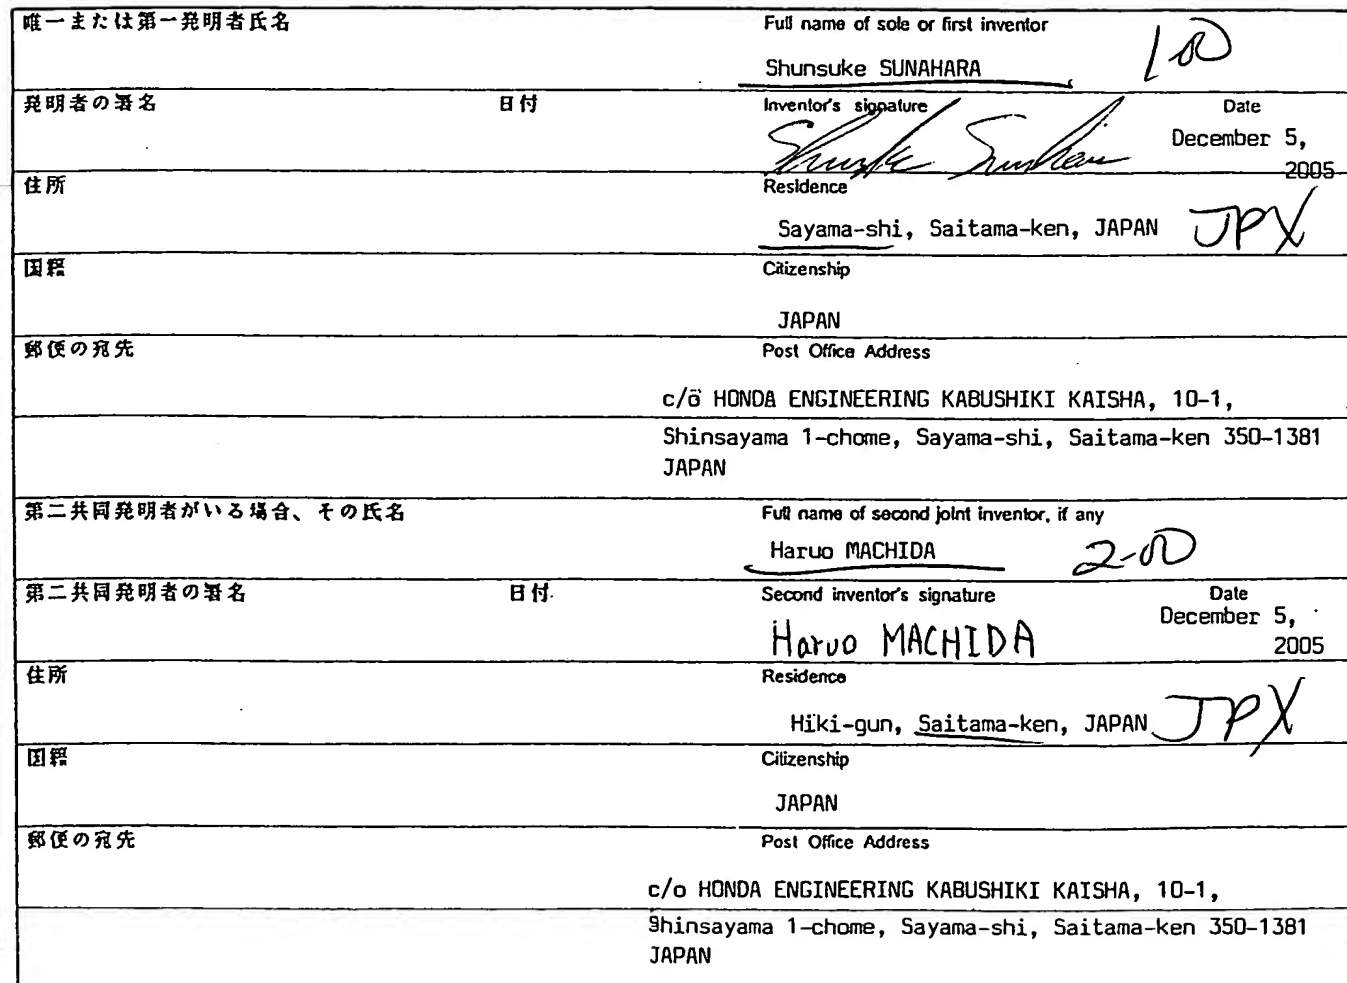 唯一または第一発明者氏名
Full name of sole or first inventor
Shunsuke SUNAHARA
1-00
発明者の署名 日付
Inventor's signature Date
Shunsuke Sunahara
December 5,
2005
住所
Residence
Sayama-shi, Saitama-ken, JAPAN JPX
国籍
Citizenship
JAPAN
郵便の宛先
Post Office Address
c/o HONDA ENGINEERING KABUSHIKI KAISHA, 10-1,
Shinsayama 1-chome, Sayama-shi, Saitama-ken 350-1381
JAPAN
第二共同発明者がいる場合、その氏名
Full name of second joint inventor, if any
Haruo MACHIDA
2-00
第二共同発明者の署名 日付
Second inventor's signature Date
Haruo MACHIDA
December 5,
2005
住所
Residence
Hiki-gun, Saitama-ken, JAPAN JPX
国籍
Citizenship
JAPAN
郵便の宛先
Post Office Address
c/o HONDA ENGINEERING KABUSHIKI KAISHA, 10-1,
Shinsayama 1-chome, Sayama-shi, Saitama-ken 350-1381
JAPAN